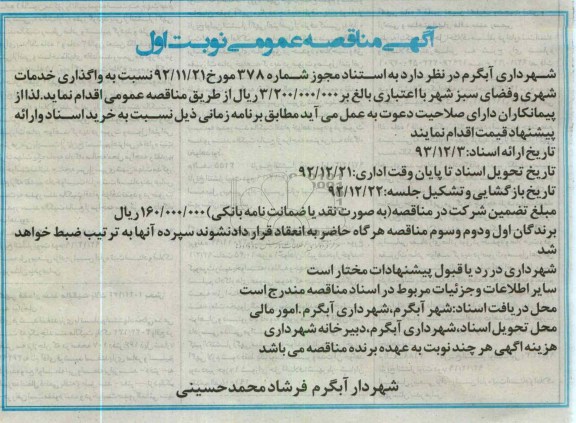 آگهی مناقصه عمومی نوبت اول
شهرداری آبگرم در نظر دارد به استناد مجوز شماره ۳۷۸ مورخ ۹۲/۱۱/۲۱ نسبت به واگذاری خدمات
شهری و فضای سبز شهر با اعتباری بالغ بر ۳/۲۰۰/۰۰۰/۰۰۰ ریال از طریق مناقصه عمومی اقدام نماید.لذا از
پیمانکاران دارای صلاحیت دعوت به عمل می آید مطابق برنامه زمانی ذیل نسبت به خرید اسناد و ارائه
پیشنهاد قیمت اقدام نمایند
تاریخ ارائه اسناد:۹۳/۱۲/۳
تاریخ تحویل اسناد تا پایان وقت اداری:۹۲/۱۲/۲۱
تاریخ بازگشایی و تشکیل جلسه:۹۲/۱۲/۲۲
مبلغ تضمین شرکت در مناقصه(به صورت نقد یا ضمانت نامه بانکی)۱۶۰/۰۰۰/۰۰۰ ریال
برندگان اول ودوم وسوم مناقصه هرگاه حاضر به انعقاد قرار دادنشوند سپرده آنها به ترتیب ضبط خواهد
شد
شهرداری در رد یا قبول پیشنهادات مختار است
سایر اطلاعات و جزئیات مربوط در اسناد مناقصه مندرج است
محل دریافت اسناد:شهر آبگرم،شهرداری آبگرم.امور مالی
محل تحویل اسناد،شهرداری آبگرم،دبیرخانه شهرداری
هزینه اگهی هر چند نوبت به عهده برنده مناقصه می باشد
شهردار آبگرم فرشاد محمدحسینی